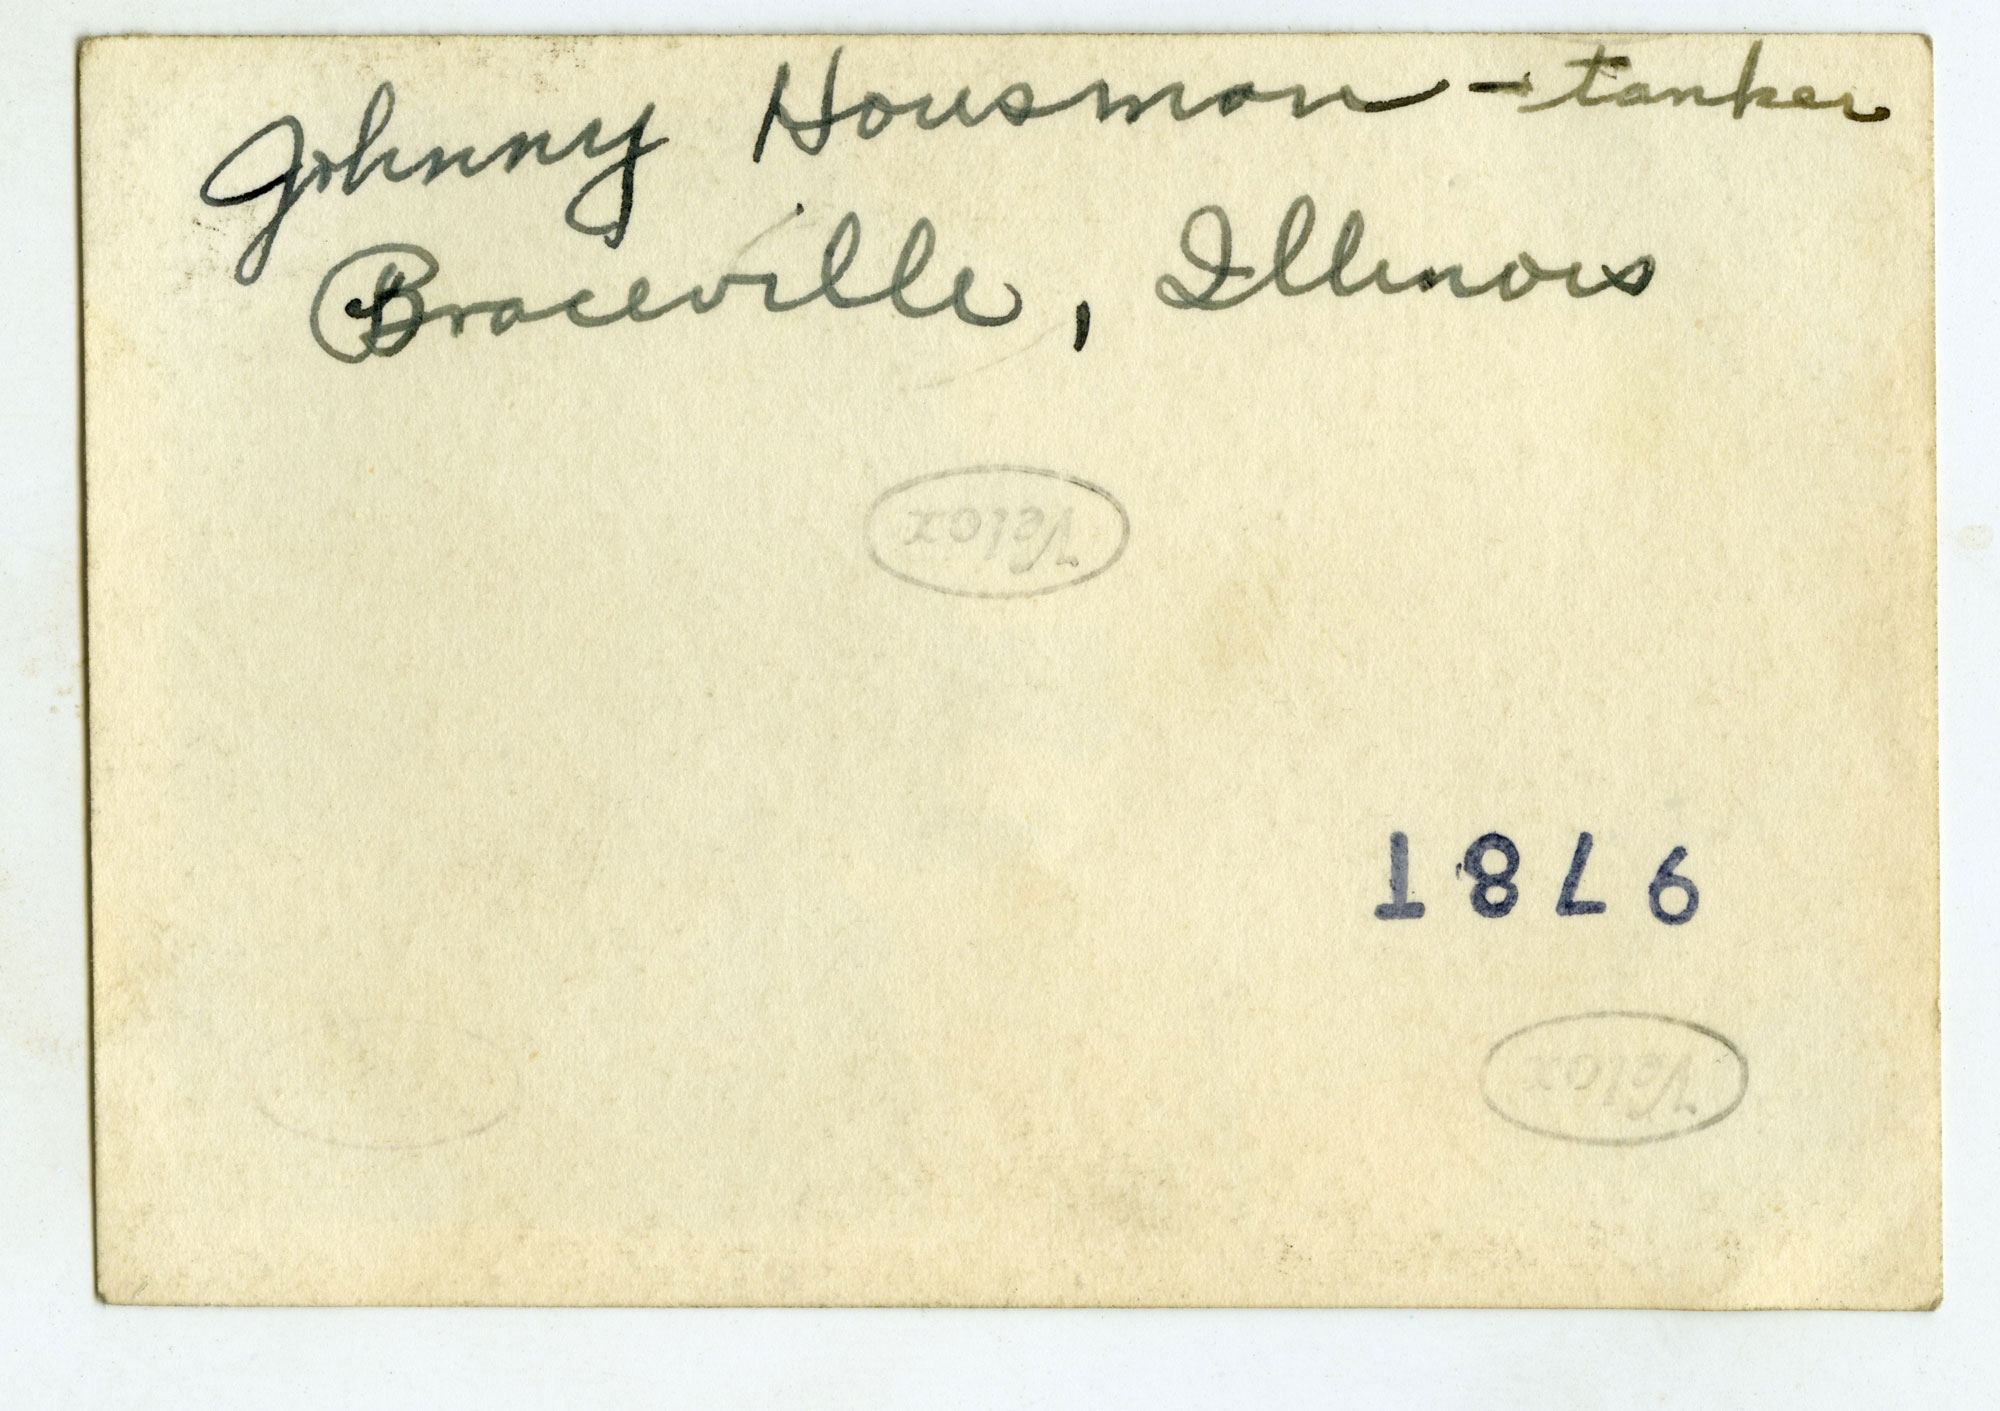 Johnny Housman - tanker
Braceville, Illinois
Velox
978T
Velox